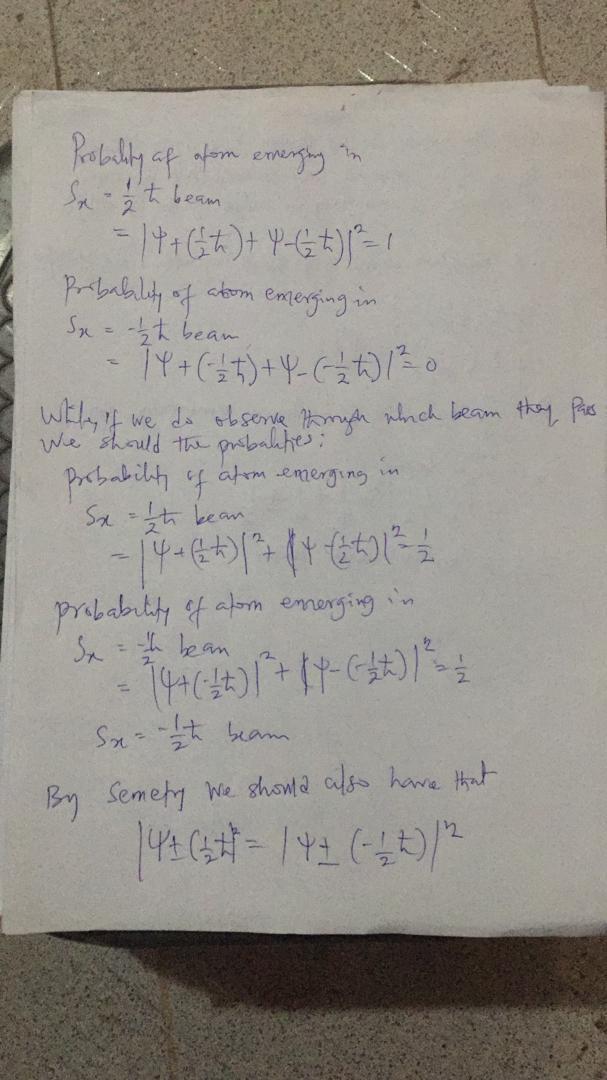 Probality af atom emerging in
Sx = 1/2 ħ beam
= |Ψ+(1/2ħ)+ Ψ-(1/2ħ)|² = 1
Probability of atom emerging in
Sx = -1/2 ħ beam
= |Ψ+(-1/2ħ)+Ψ-(-1/2ħ)|² = 0
While, if we do observe through which beam they pass
We should the probalities:
probability of atom emerging in
Sx = 1/2ħ bean
= |Ψ+(1/2ħ)|² + |Ψ-(1/2ħ)|² = 1/2
probability of atom emerging in
Sx = -1/2ħ bean
= |Ψ+(-1/2ħ)|² + |Ψ-(-1/2ħ)|² = 1/2
Sx = -1/2ħ beam
By Semetry we should also have that
|Ψ±(1/2ħ)|² = |Ψ± (-1/2ħ)|²